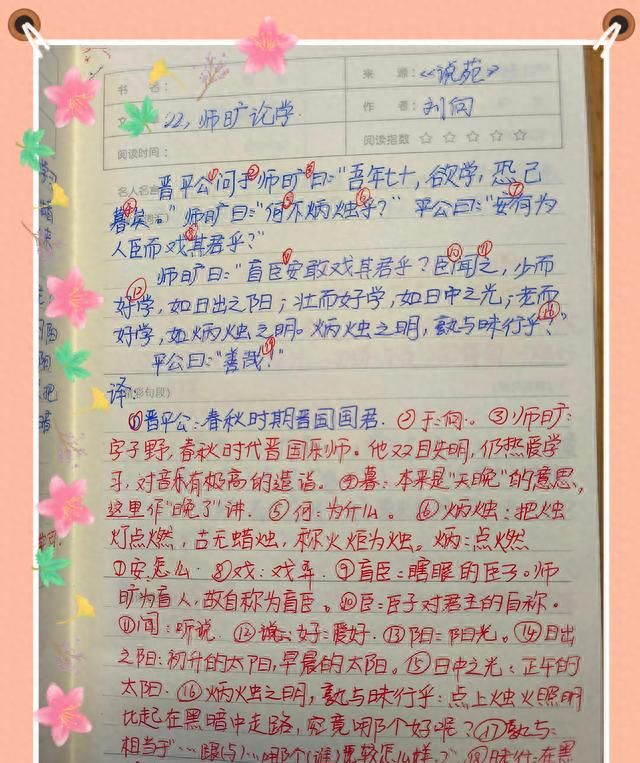 书 名： 来 源：《说苑》
22，师旷论学. 作 者：刘向
阅读时间： 阅读指数 ☆ ☆ ☆ ☆ ☆
名人名言
晋平公①问于②师旷③曰："吾年七十，欲学，恐已
暮④矣。"师旷曰："何⑤不炳烛⑥乎？"平公曰："安⑦有为
人臣而戏⑧其君乎？"
师旷曰："盲臣⑨安敢戏其君乎？臣⑩闻⑪之，少而
好⑫学，如日出之阳；壮而好学，如日中之光；老而
好学，如炳烛之明。炳烛之明，孰与昧行乎⑯？"
平公曰："善哉⑲！"
译 彩句段）
①晋平公：春秋时期晋国国君. ②于：问. ③师旷：
字子野，春秋时代晋国乐师。他双目失明，仍热爱学
习，对音乐有极高的造诣。④暮：本来是"天晚"的意思，
这里作"晚了"讲. ⑤何：为什么。 ⑥炳烛：把烛
灯点燃，古无蜡烛，称火炬为烛。炳：点燃
⑦安：怎么. ⑧戏：戏弄. ⑨盲臣：瞎眼的臣子。师
旷为盲人，故自称为盲臣。⑩臣：臣子对君主的自称。
⑪闻：听说. ⑫好：爱好. ⑬阳：阳光。⑭日出
之阳：初升的太阳，早晨的太阳。⑮日中之光：正午的
太阳. ⑯炳烛之明，孰与昧行乎：点上烛火照明
比起在黑暗中走路，究竟哪个好呢？⑰孰与：
相当于"…跟（与）…哪个（谁）更较怎么样？" ⑱昧行：在黑